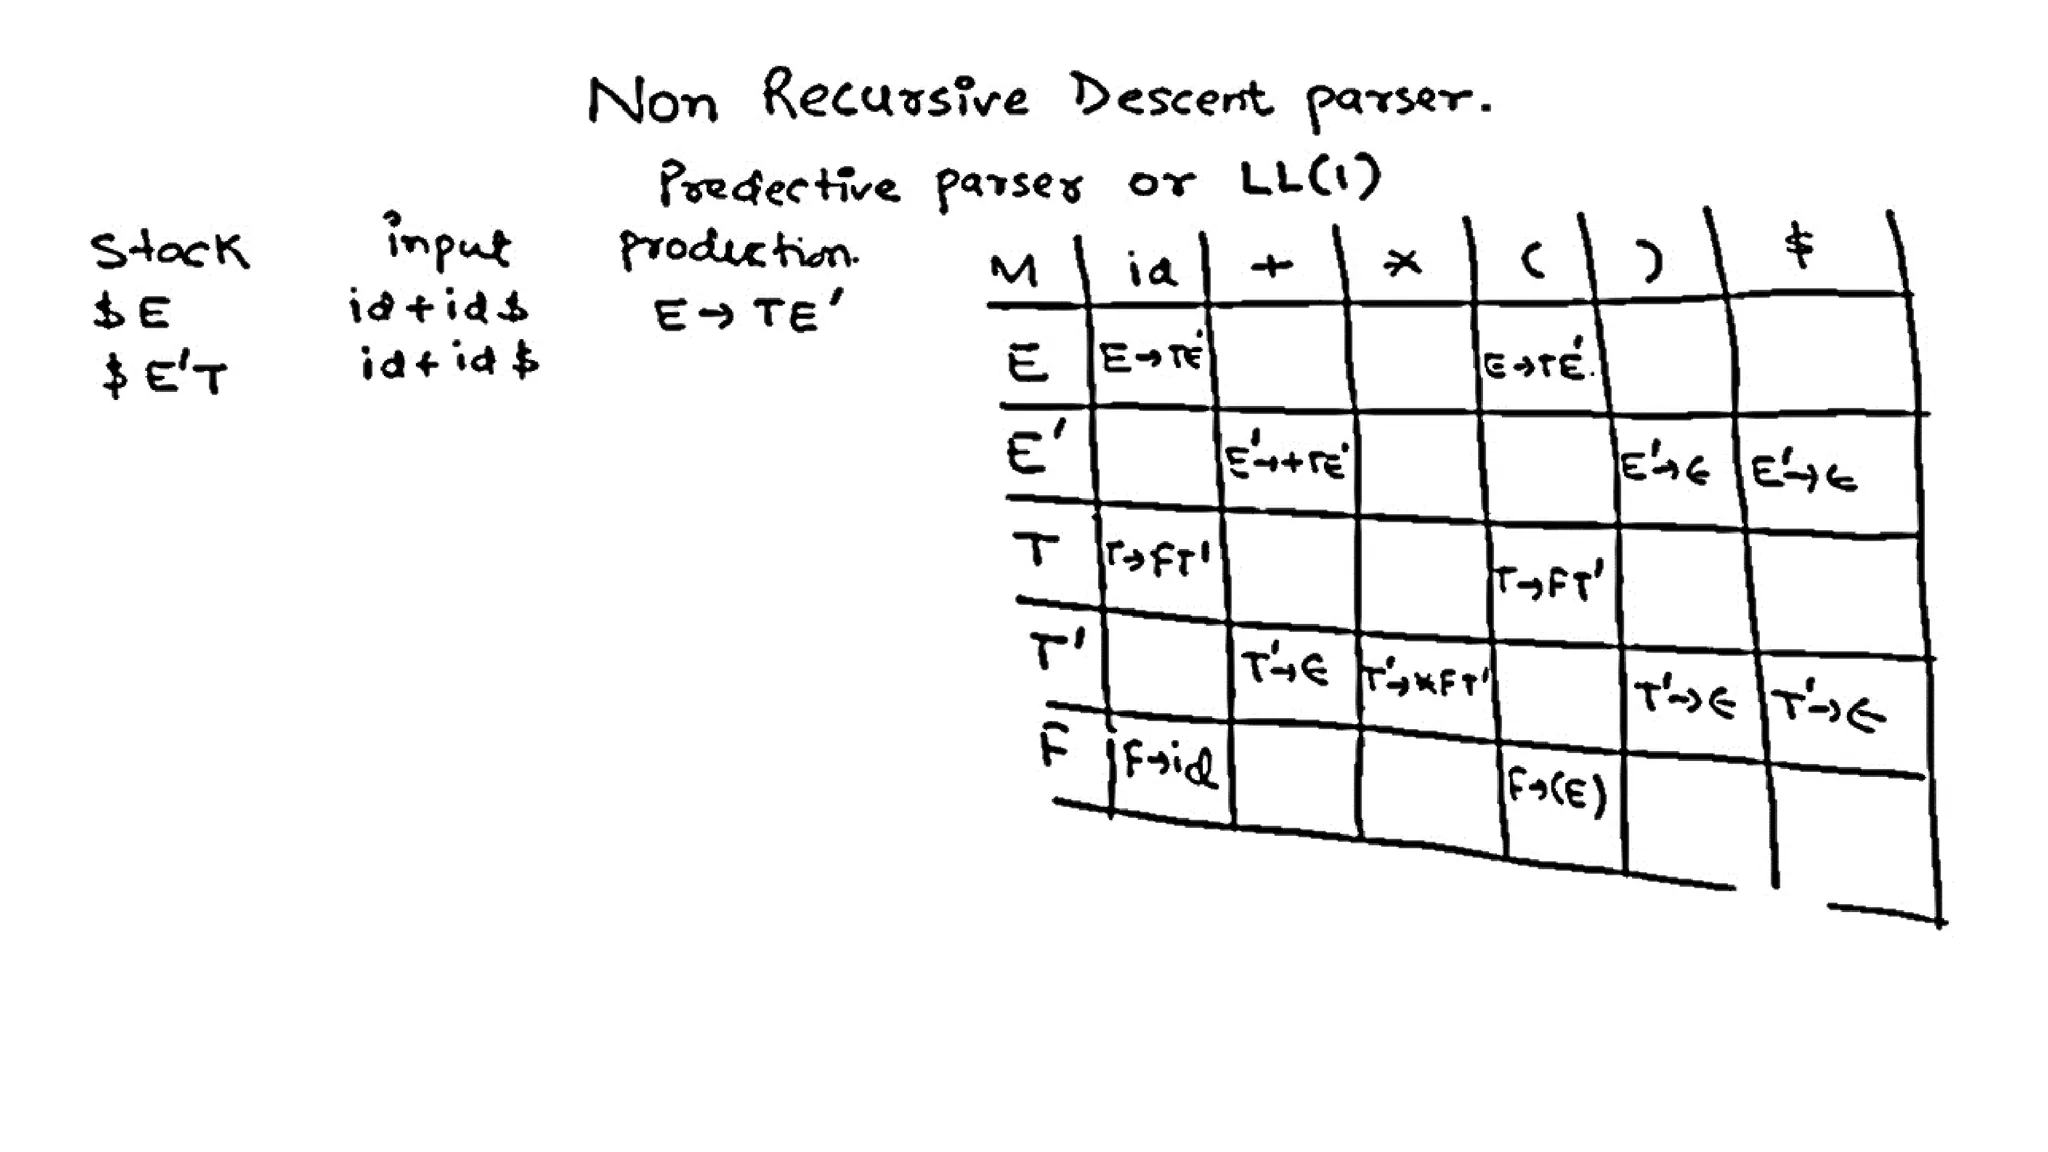 Non Recursive Descent parser.
Predective parser or LL(1)
Stack input production.
$ E id + id $ E → TE'
$ E'T id + id $
M id + * ( ) $
E E → TE' E → TE'.
E' E' → +TE' E' → ϵ E' → ϵ
T T → FT' T → FT'
T' T' → ϵ T' → *FT' T' → ϵ T' → ϵ
F F → id F → (E)